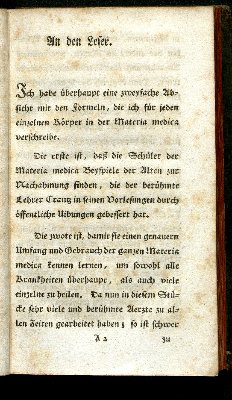 An den Leser.
Ich habe überhaupt eine zweyfache Ab-
sicht mit den Formeln, die ich für jeden
einzelnen Körper in der Materia medica
verschreibe.
Die erste ist, daß die Schüler der
Materia medica Beyspiele der Alten zur
Nachahmung finden, die der berühmte
Lehrer Cranz in seinen Vorlesungen durch
öffentliche Uibungen gebessert hat.
Die zwote ist, damit sie einen genauern
Umfang und Gebrauch der ganzen Materia
medica kennen lernen, um sowohl alle
Krankheiten überhaupt, als auch viele
einzelne zu heilen. Da nun in diesem Stü-
cke sehr viele und berühmte Aerzte zu al-
len Zeiten gearbeitet haben; so ist schwer
A 2 zu